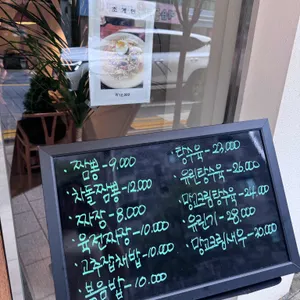 ·짬뽕-9.000
·차돌짬뽕-12.000
·짜장-8.000
·육전짜장-10.000
·고추잡채밥-10.000
·볶음밥-10.000
·탕수육-23.000
·유린탕수육-26.000
·망고크림탕수육-24.000
·유린기-28.000
·망고크림새우-30.000